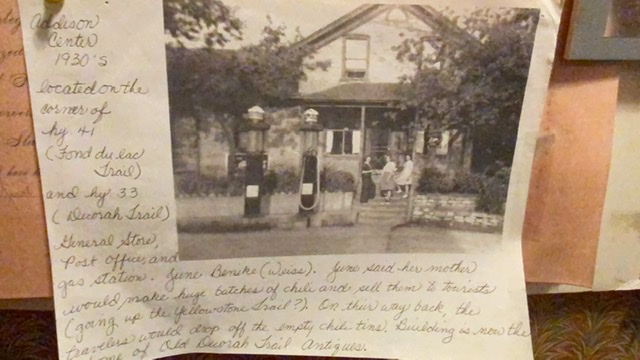 Addison
Center
1930's
located on the
corner of
hy. 41
(Fond du lac
Trail)
and hy 33
(Decorah Trail)
General Store,
Post Office, and
gas station. June Benike (Weiss). June said her mother
would make huge batches of chili and sell them to tourists
(going up the Yellowstone Trail?). On their way back, the
travelers would drop off the empty chili tins. Building is now the
home of Old Decorah Trail Antiques.